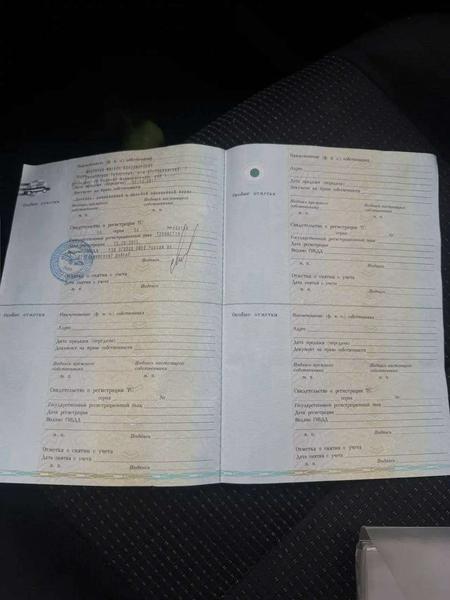 Наименование (ф. и. о.) собственника
Адрес
Дата продажи (передачи)
Документ на право собственности
Подпись прежнего собственника
Подпись настоящего собственника
М. П.
М. П.
Особые отметки
Свидетельство о регистрации ТС
серия
№
Государственный регистрационный знак
Дата регистрации
Выдано ГИБДД
М. П.
Подпись
Отметка о снятии с учета
Дата снятия с учета
М. П.
Подпись
Наименование (ф. и. о.) собственника
Адрес
Дата продажи (передачи)
Документ на право собственности
Подпись прежнего собственника
Подпись настоящего собственника
М. П.
М. П.
Особые отметки
Свидетельство о регистрации ТС
серия
№
Государственный регистрационный знак
Дата регистрации
Выдано ГИБДД
М. П.
Подпись
Отметка о снятии с учета
Дата снятия с учета
М. П.
Подпись
Особые отметки
Наименование (ф. и. о.) собственника
Адрес
Дата продажи (передачи)
Документ на право собственности
Подпись прежнего собственника
Подпись настоящего собственника
М. П.
М. П.
Свидетельство о регистрации ТС
серия
№
Государственный регистрационный знак
Дата регистрации
Выдано ГИБДД
М. П.
Подпись
Отметка о снятии с учета
Дата снятия с учета
М. П.
Подпись
Особые отметки
Наименование (ф. и. о.) собственника
Адрес
Дата продажи (передачи)
Документ на право собственности
Подпись прежнего собственника
Подпись настоящего собственника
М. П.
М. П.
Свидетельство о регистрации ТС
серия
№
Государственный регистрационный знак
Дата регистрации
Выдано ГИБДД
М. П.
Подпись
Отметка о снятии с учета
Дата снятия с учета
М. П.
Подпись